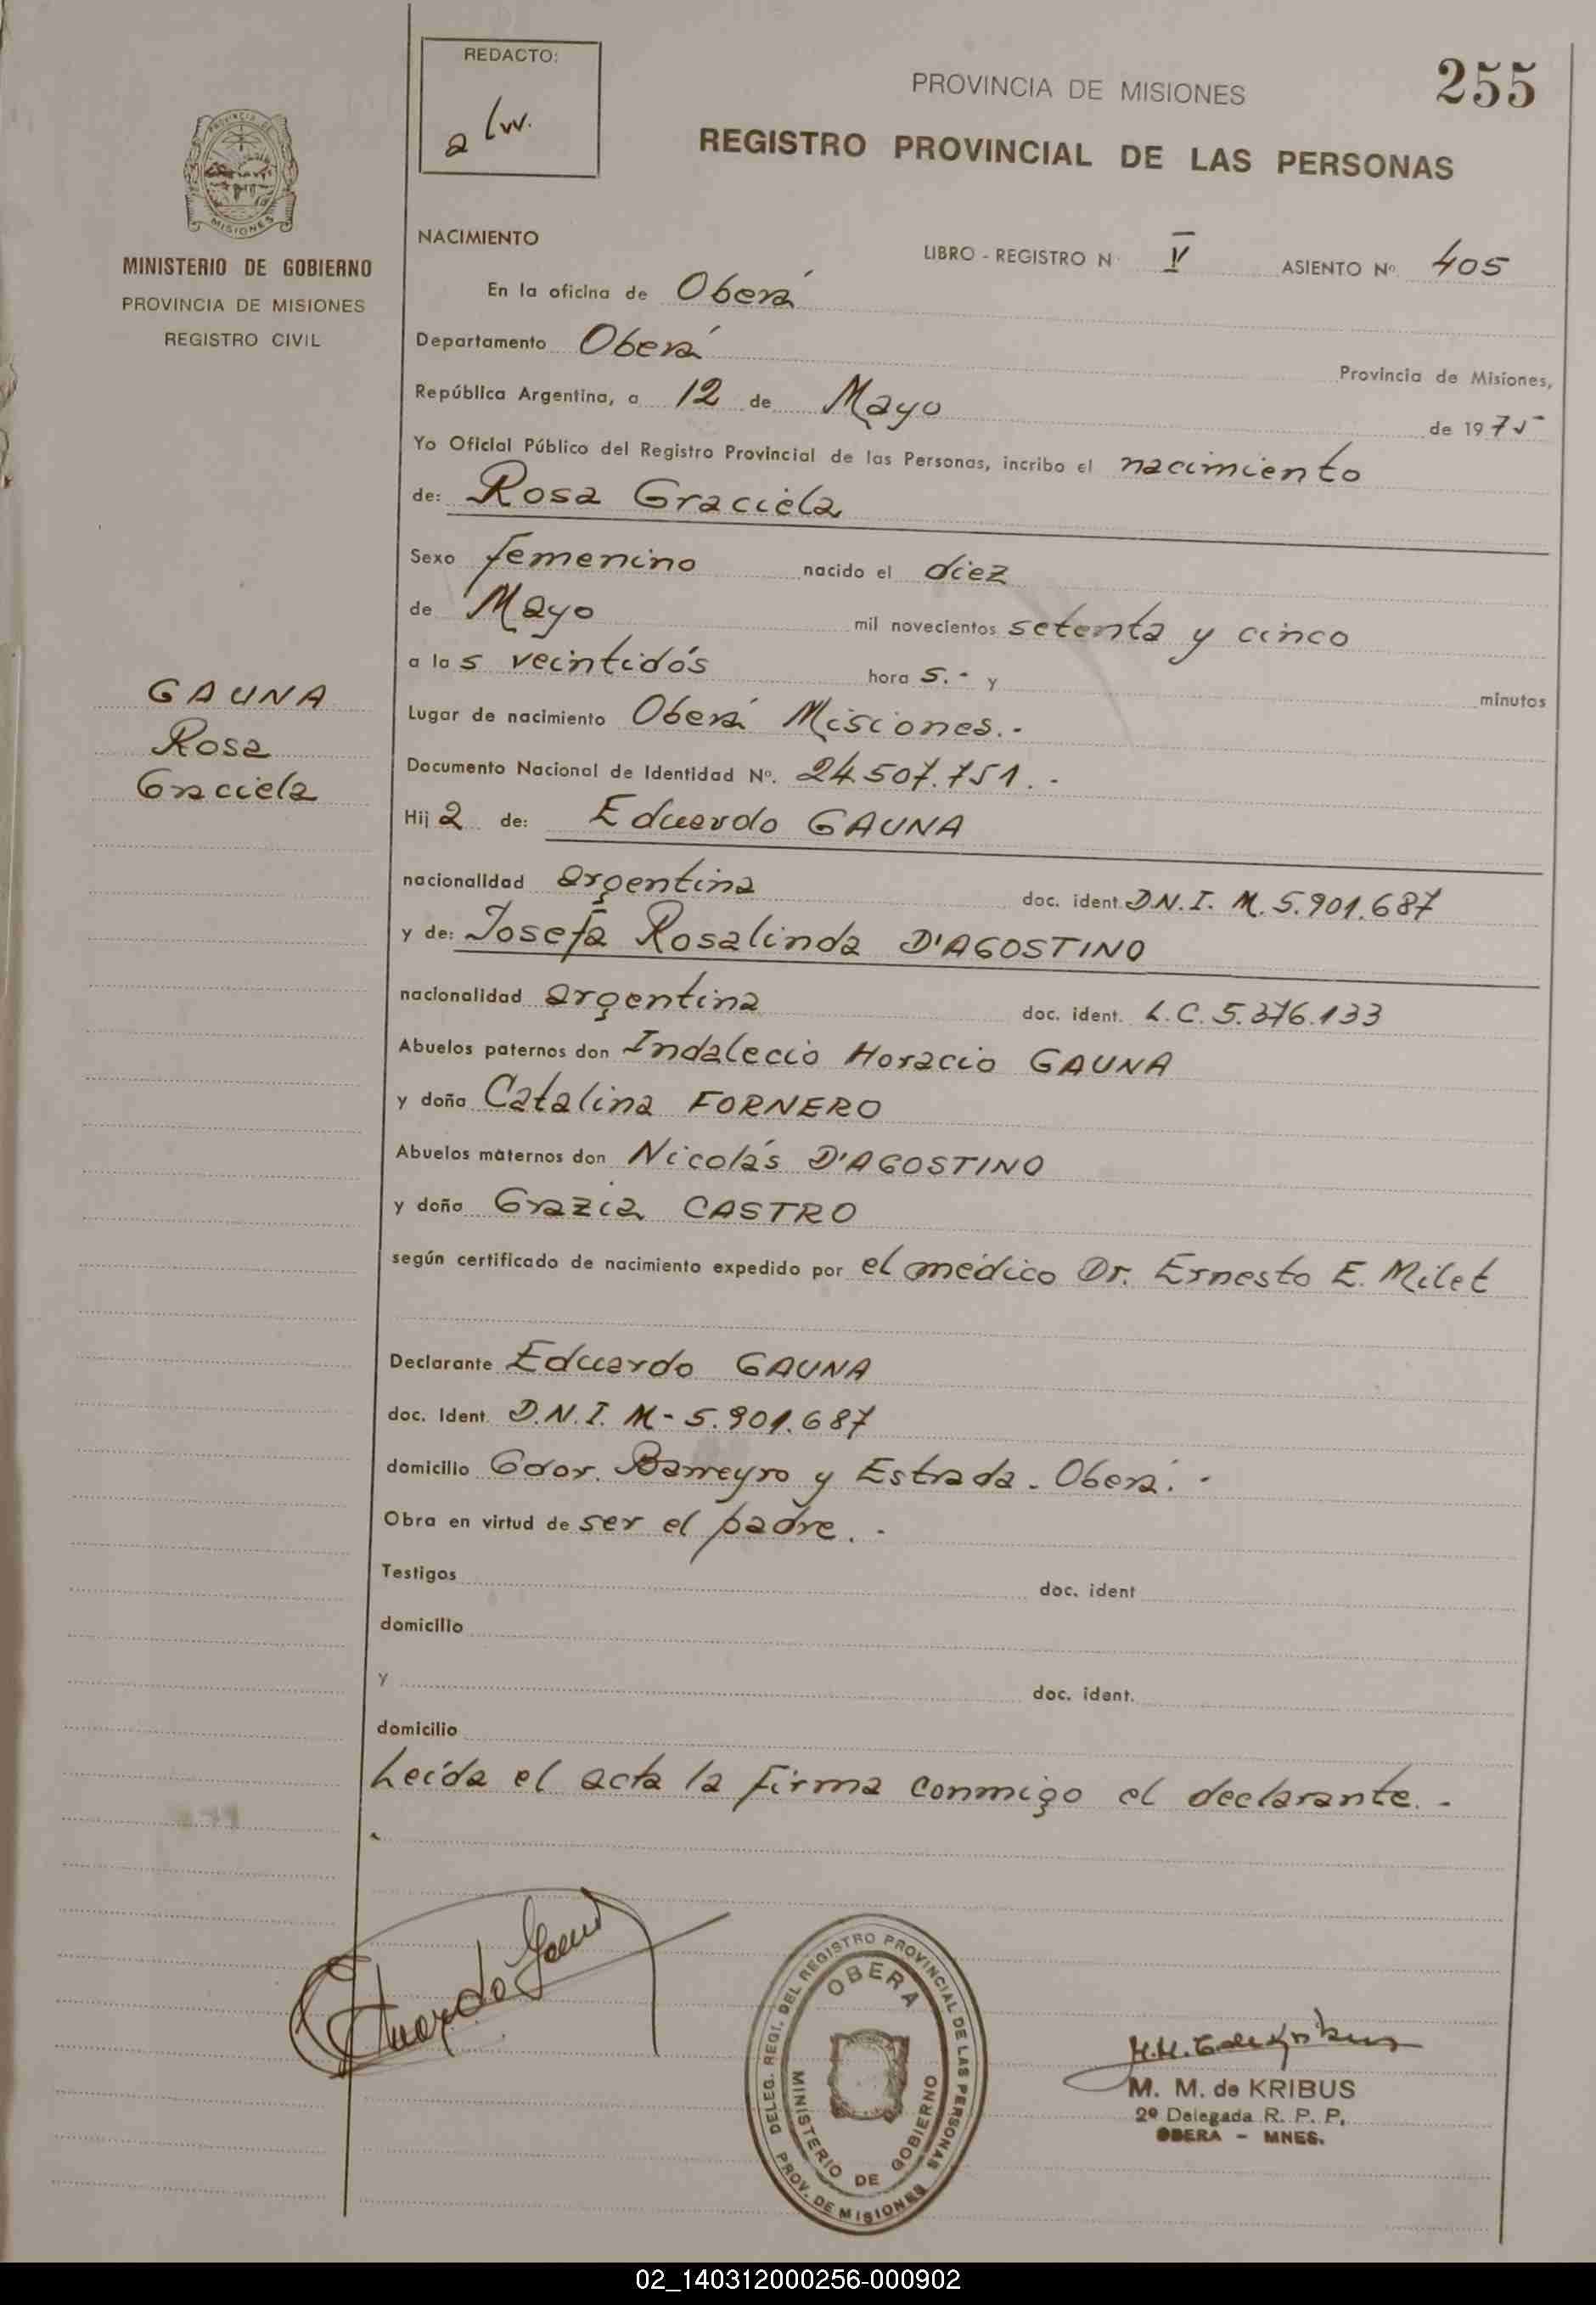 REDACTO:
PROVINCIA DE MISIONES
255
REGISTRO PROVINCIAL DE LAS PERSONAS
MINISTERIO DE GOBIERNO
PROVINCIA DE MISIONES
REGISTRO CIVIL
NACIMIENTO
LIBRO - REGISTRO N V ASIENTO Nº 405
En la oficina de Oberá
Departamento Oberá
Provincia de Misiones,
República Argentina, a 12 de Mayo de 1975
Yo Oficial Público del Registro Provincial de las Personas, incribo el nacimiento
de: Rosa Graciela
Sexo femenino nacido el diez
de Mayo mil novecientos setenta y cinco
a las veintidós hora s.- y minutos
GAUNA
Rosa
Graciela
Lugar de nacimiento Oberá Misiones.-
Documento Nacional de Identidad Nº. 24.507.751.-
Hija de: Eduardo GAUNA
nacionalidad argentina doc. ident. D.N.I. M. 5.901.687
y de: Josefa Rosalinda D'AGOSTINO
nacionalidad argentina doc. ident. L.C. 5.376.133
Abuelos paternos don Indalecio Horacio GAUNA
y doña Catalina FORNERO
Abuelos maternos don Nicolás D'AGOSTINO
y doña Grazia CASTRO
según certificado de nacimiento expedido por el médico Dr. Ernesto E. Milet
Declarante Eduardo GAUNA
doc. Ident. D.N.I. M- 5.901.687
domicilio Gdor. Barreyro y Estrada. Oberá.-
Obra en virtud de ser el padre.-
Testigos doc. ident
domicilio
y doc. ident.
domicilio
Leída el acta la firma conmigo el declarante.-
Eduardo Gauna
DELEG. REGI. DEL REGISTRO PROVINCIAL DE LAS PERSONAS
OBERA
MINISTERIO DE GOBIERNO
PROV. DE MISIONES
M. M. de KRIBUS
2º Delegada R. P. P.
OBERA - MNES.
02_140312000256-000902